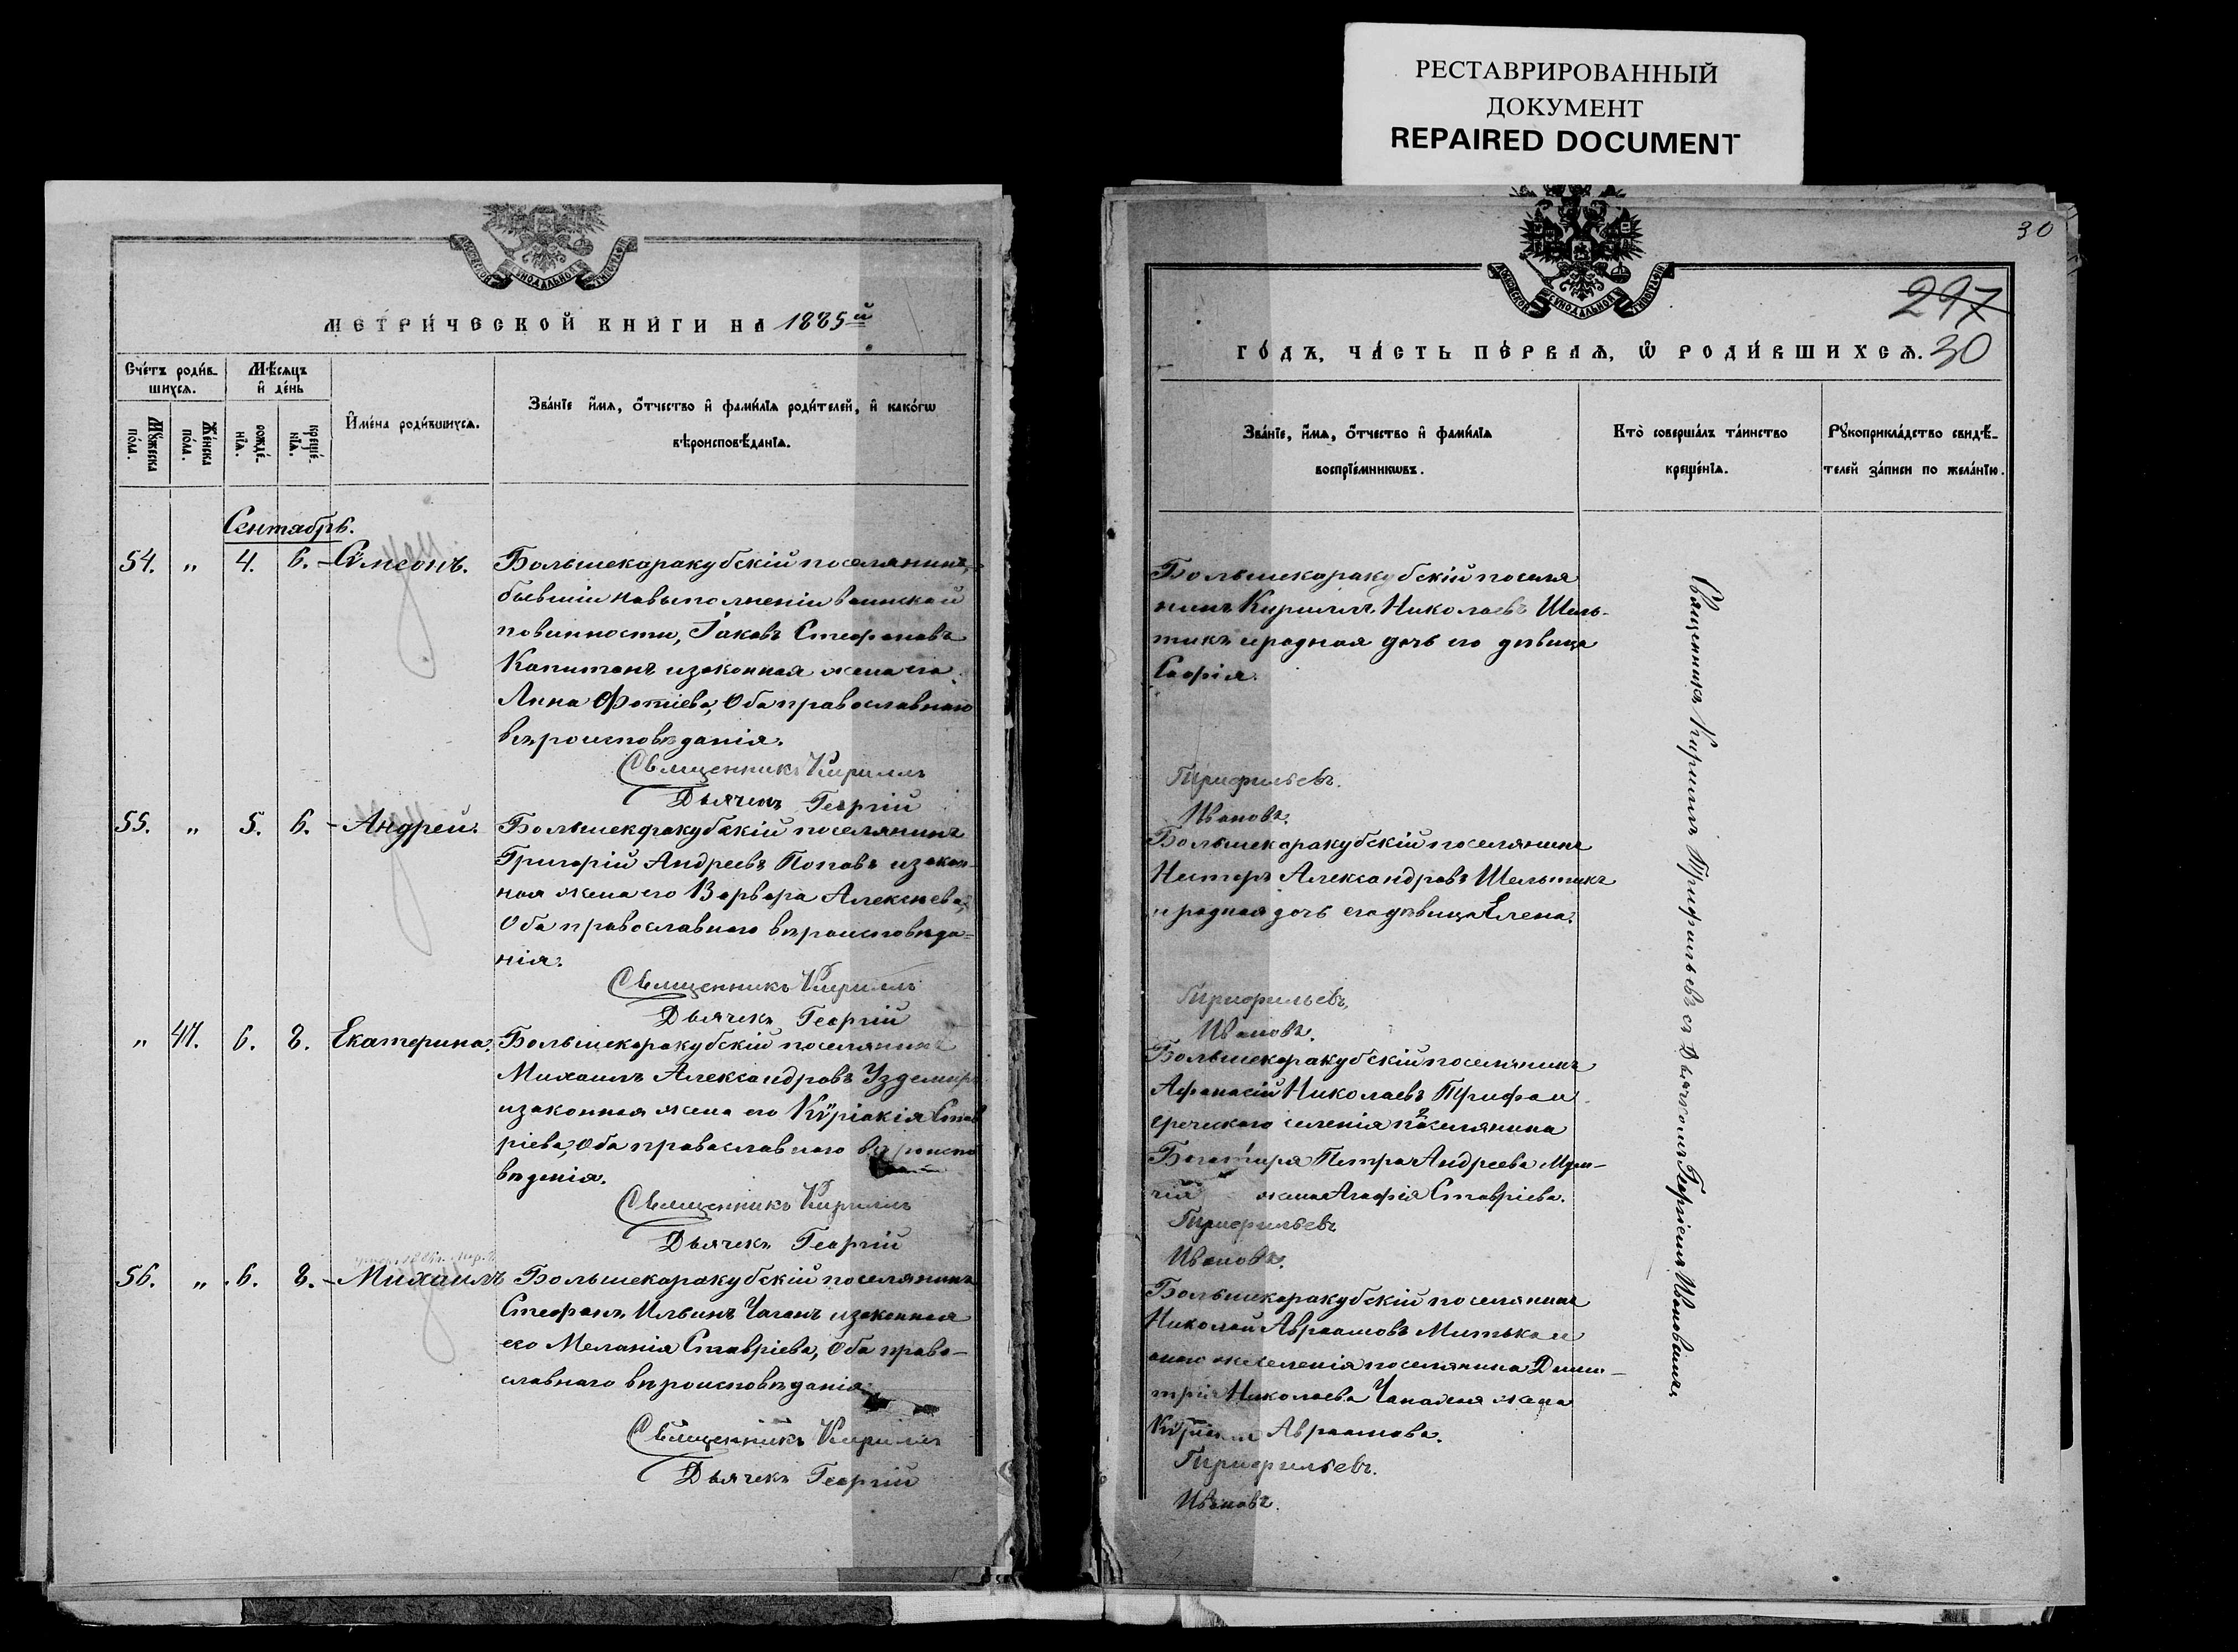 РЕСТАВРИРОВАННЫЙ
ДОКУМЕНТ
REPAIRED DOCUMENT
МЕТРИ́ЧЕСКОЙ КНИ́ГИ НА 1885й
Сче́тъ роди́в-
шихся.
Мѣ́сяцъ
и҆ де́нь
Мꙋ́жеска
по́ла.
Же́нска
по́ла.
рожде́-
нїѧ.
креще́-
нїѧ.
И҆мена̀ роди́вшихсѧ.
Зва́нїе и҆́мѧ, ѻ҆́тчество и҆ фами́лїѧ роди́телей, и҆ како́гѡ
вѣроисповѣ́данїѧ.
Сентябрь.
54. „ 4. 6. Сѵмсонъ.
Большекаракубскій поселянинъ,
бывшій на выполненіи воинской
повинности, Іаковъ Стефановъ
Капитанъ и законная жена его
Анна Фотіева, Оба православнаго
вѣроисповѣданія.
Священникъ Кириллъ
Дьячекъ Георгій
55. „ 5. 6. Андрей.
Большекаракубскій поселянинъ
Григорій Андреевъ Поповъ и закон-
ная жена его Варвара Алексѣева,
Оба православнаго вѣроисповѣда-
нія.
Священникъ Кириллъ
Дьячекъ Георгій
„ 41. 6. 8. Екатерина.
Большекаракубскій поселянинъ
Михаилъ Александровъ Уздемир
и законная жена его Кѵріакія Став
ріева, Оба православнаго вѣроиспо
вѣденія.
Священникъ Кириллъ
Дьячекъ Георгій
56. „ 6. 8. Михаилъ
Большекаракубскій поселянинъ
Стефанъ Ильинъ Чаганъ и законная
его Меланія Ставріева, Оба право-
славнаго вѣроисповѣданія
Священникъ Кириллъ
Дьячекъ Георгій
30
297
ГО́ДЪ, ЧА́СТЬ ПЕ́РВАѦ, Ѽ РОДИ́ВШИХСѦ. 30
Зва́нїе, и҆́мѧ, ѻ҆́тчество и҆ фами́лїѧ
воспрїе́мникѡвъ.
Кто̀ соверша́лъ та́инство
креще́нїѧ.
Рꙋкоприкла́дство свидѣ́-
телей за́писи по жела́нїю.
Большекаракубскій поселя
нинъ Кириллъ Николаевъ Шель-
тикъ и родная дочь его дѣвица
Софія.
Трифильевъ.
Ивановъ.
Большекаракубскій поселянинъ
Несторъ Александровъ Шельтикъ
и родная дочь его дѣвица Елена.
Трифильевъ,
Ивановъ.
Большекаракубскій поселянинъ
Афанасій Николаевъ Трифон
греческаго селенія поселянина
Богатиря Петра Андреева
жена Агафія Ставріева.
Трифильевъ
Ивановъ.
Большекаракубскій поселянинъ
Николай Авраамовъ Митька и
селенія поселянина Дими-
трія Николаева жена
Авраамова.
Трифильевъ.
Ивановъ.
Священникъ Кириллъ Трифильевъ съ Дьячкомъ Георгіемъ Ивановымъ.